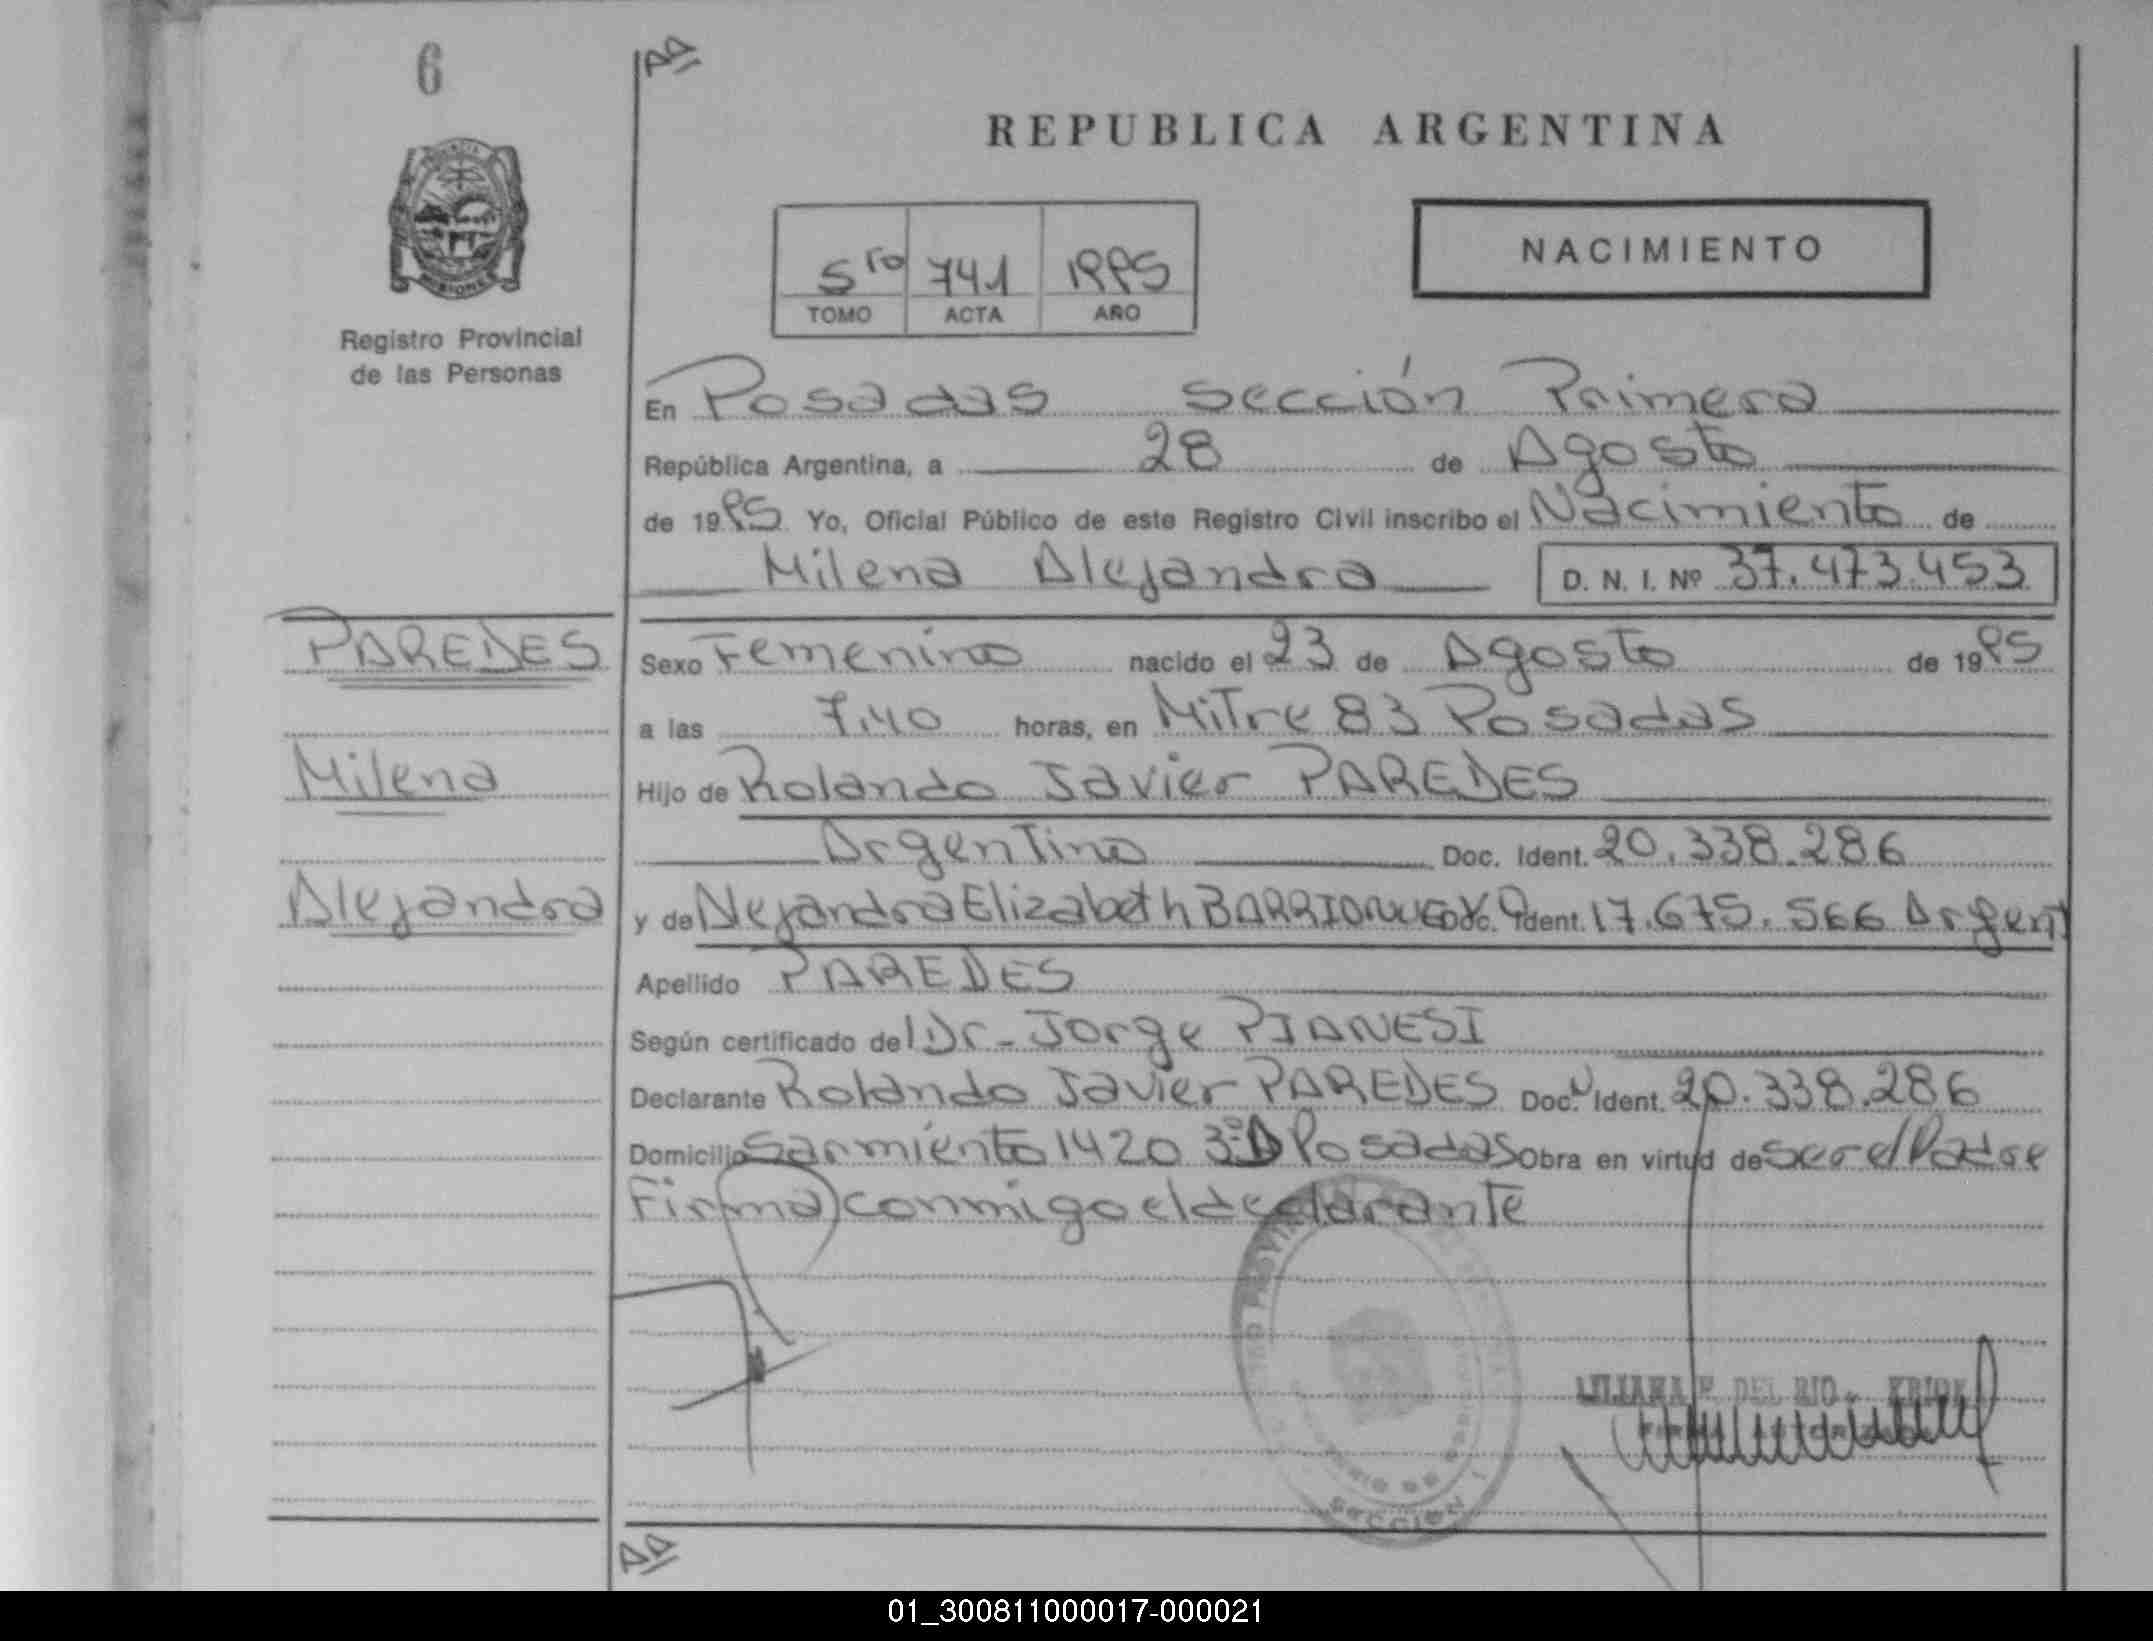 6
AA
REPUBLICA ARGENTINA
5to 741 1995
TOMO ACTA AÑO
NACIMIENTO
Registro Provincial
de las Personas
En Posadas sección Primera
República Argentina, a 28 de Agosto
de 1995 Yo, Oficial Público de este Registro Civil inscribo el Nacimiento de
Milena Alejandra D. N. I. Nº 37.473.453
PAREDES
Milena
Alejandra
Sexo Femenino nacido el 23 de Agosto de 1995
a las 7.40 horas, en Mitre 83 Posadas
Hijo de Rolando Javier PAREDES
Argentino Doc. Ident. 20.338.286
y de Alejandra Elizabeth BARRIONUEVO Doc. Ident. 17.675.566 Argent
Apellido PAREDES
Según certificado del Dr- Jorge PIANESI
Declarante Rolando Javier PAREDES Doc. Ident. 20.338.286
Domicilio Sarmiento 1420 3º D Posadas Obra en virtud de ser el Padre
Firma conmigo el declarante
LILIANA DEL RIO
SECCION
AA
01_300811000017-000021